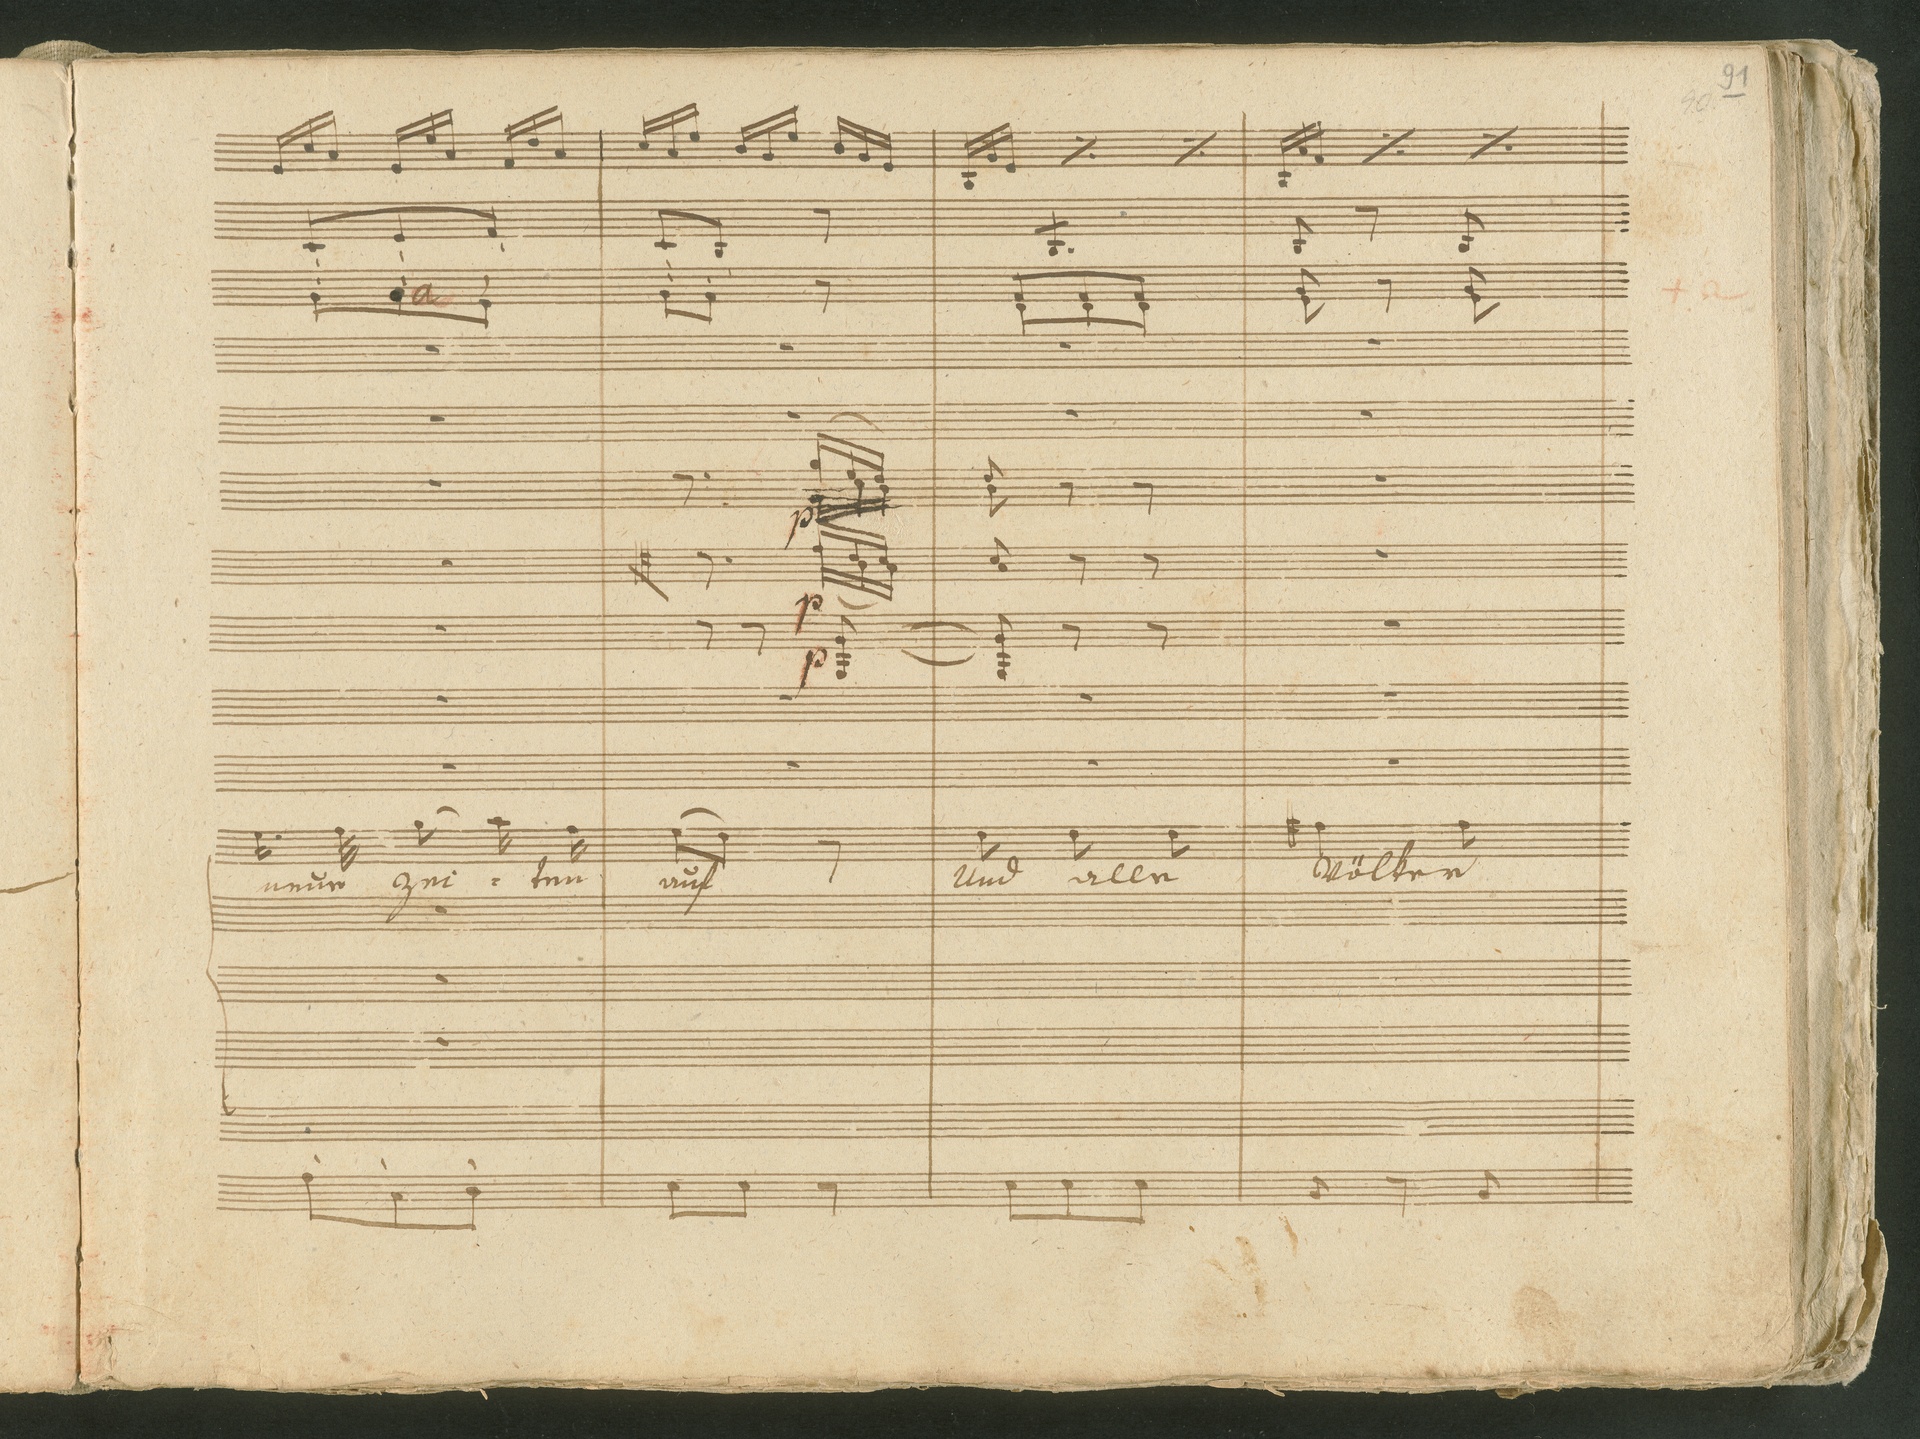 91
90.
a
+ a
p
p
p
neue Zei = ten auf Und alle Völker